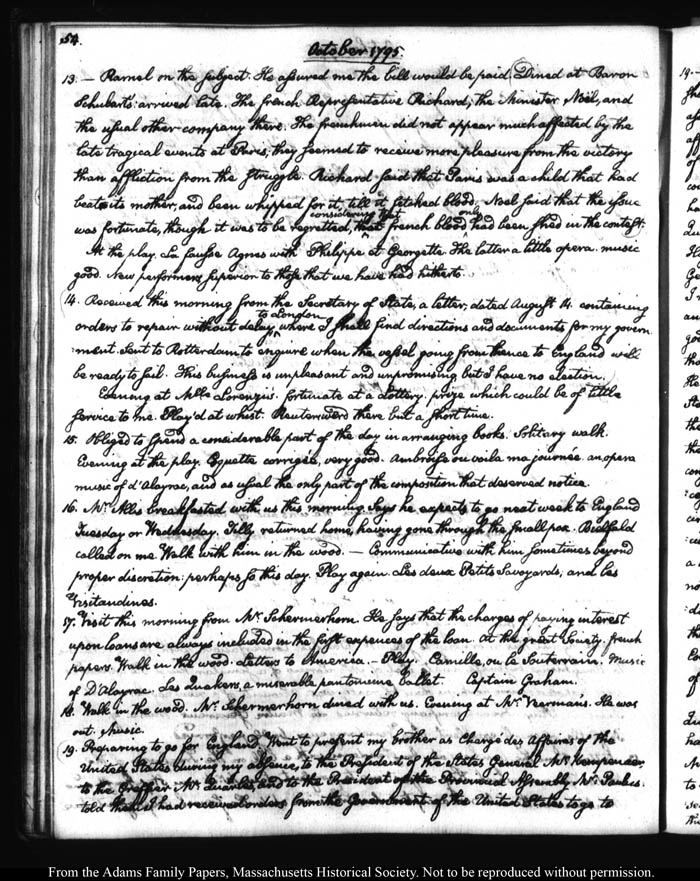 54.
October 1795.
13. — Ramel on the subject. He assured me the bill would be paid. Dined at Baron
Schubarts: arrived late. The french Representative Richard, the Minister Noël, and
the usual other company there. The frenchmen did not appear much affected by the
late tragical events at Paris, they seemed to receive more pleasure from the victory
than affliction from the struggle. Richard said that Paris was a child that had
beat its mother, and been whipped for it, till it fetched blood. Noel said that the issue
considering that only
was fortunate, though it was to be regretted, that french blood had been shed in the contest.
At the play. La fausse Agnes with Philippe et Georgette. The latter a little opera. music
good. New performers superior to those that we have had hitherto.
14. Received this morning from the Secretary of State, a letter, dated August 14. containing
to London
orders to repair without delay, where I shall find directions and documents for my govern-
ment. Sent to Rotterdam to enquire when the vessel going from thence to England will
be ready to sail. This business is unpleasant and unpromising but I have no election.
Evening at Mlle Lorenzi's. fortunate at a lottery. prize which could be of little
service to me. Play'd at whist. Reuterswerd there but a short time.
15. Obliged to spend a considerable part of the day in arranging books. Solitary walk.
Evening at the play. Coquette corrigée, very good. Ambroise ou voila ma journée. an opera
music of d'Alayrac, and as usual the only part of the composition that deserved notice.
16. Mr. Alls breakfasted with us this morning. Says he expects to go next week to England
Tuesday or Wednesday. Tilly returned home, having gone through the small pox. Bielfeld
called on me. Walk with him in the wood. — Communicative with him sometimes beyond
proper discretion: perhaps so this day. Play again. Les deux Petits Savoyards; and les
Visitandines.
17. Visit this morning from Mr. Schermerhorn. He says that the charges of paying interest
upon loans are always included in the first expences of the loan. At the great Society. french
papers. Walk in the wood. Letters to America. — Play. Camille, ou le Souterrain. Music
of D'Alayrac. Les Quakers, a miserable pantomime ballet. Captain Graham.
18. Walk in the wood. Mr. Schermerhorn dined with us. Evening at Mr. Veerman's. He was
out. Music.
19. Preparing to go for England. Went to present my brother as Chargé des Affaires of the
United States during my absence, to the President of the States General Mr.
to the Greffier Mr. Quarles, and to the President of the Provincial Assembly Mr. Paulus.
told them I had received orders from the Government of the United States to go to
From the Adams Family Papers, Massachusetts Historical Society. Not to be reproduced without permission.